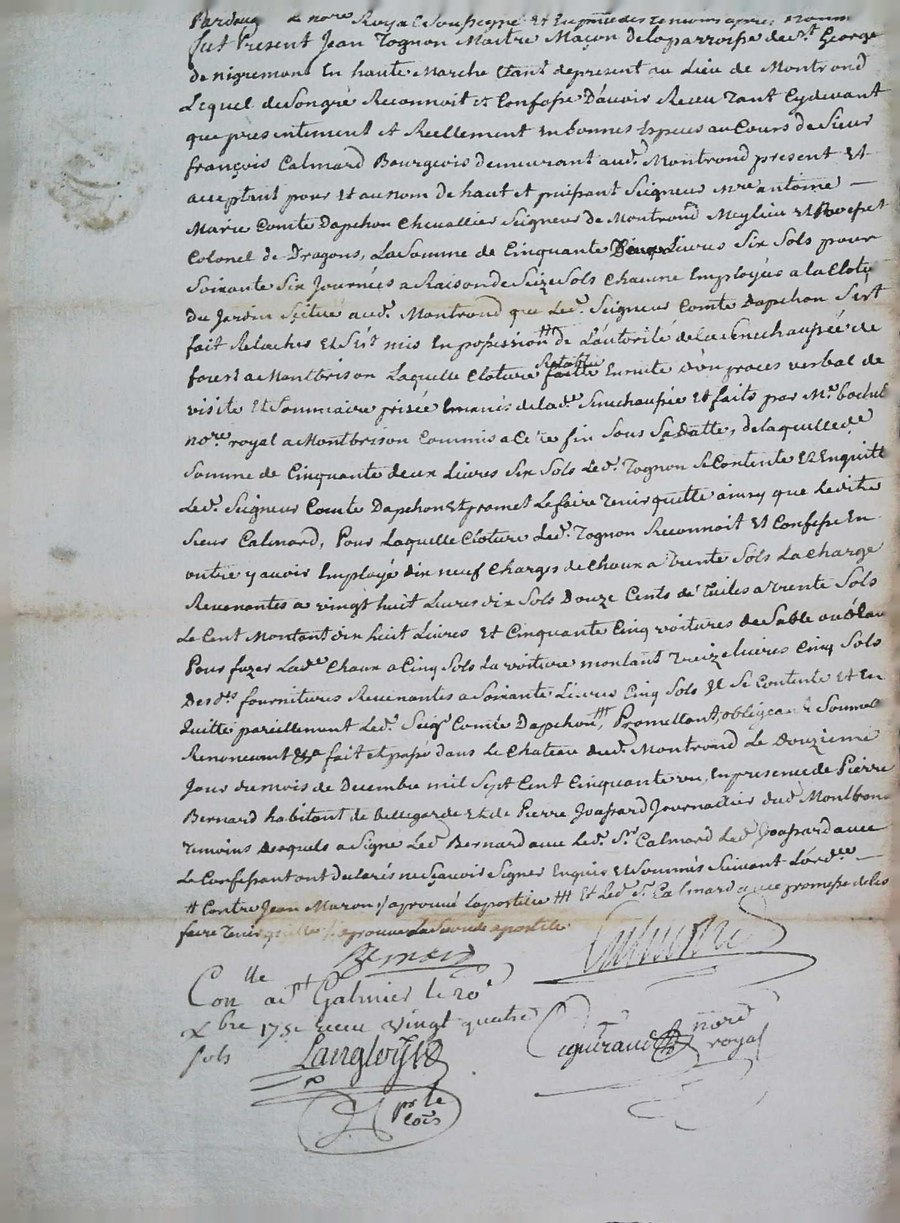 Pardevant le no.re Royal Soussigné Et En p.nce des temoins apres nommés
fut Present Jean Tognon Maitre Maçon de la parroisse de S.t George
de nigremont En haute Marche Etant de present au Lieu de Montrond
Lequel de Son gré Reconnoit et Confesse D'avoir Receu tant Cydevant
que presentement et Reellement en bonnes Especes au Cours de Sieur
françois Calmard Bourgeois demeurant aud. Montrond present Et
acceptent pour Et au nom de haut et puissant Seigneur m.re antoine
Marie Comte Dapchon Chevallier Seigneur de Montrond Meylieu Et
Colonel de Dragons, La Somme de Cinquante Deux Livres Six Sols pour
Soixante Six Journées a Raison de Seize Sols Chacune Employées a la Clotu
Du Jardin Scitué aud. Montrond que Led. Seigneur Comte Dapchon S'est
fait Relacher Et S'est mis En possession # de L'autorité de la Senechaussée de
forest a Montbrison Laquelle Cloture faitte Retablie Ensuite d'un proces verbal de
visite Et Sommaire prisée Emanés de lad.e Senechaussée Et faits par M.e
no.re royal a Montbrison Commis a Cette fin Sous Sa Datte, de laquelle d.e
Somme de Cinquante deux Livres Six Sols Led. Tognon Se Contente Et En quitte
Led. Seigneur Comte Dapchon Et promet Le faire tenir quitte ainsy que ledit
Sieur Calmard, Pour Laquelle Cloture Led. Tognon Reconnoit Et Confesse En
outre y avoir Employé dix neuf Charges de Chaux a trente Sols La Charge
Revenantes a vingt huit Livres dix Sols Douze Cents de tuiles a trente Sols
Le Cent Montant dix huit Livres Et Cinquante Cinq voitures de Sable ou d'Eau
Pour fuzer Lad.e Chaux a Cinq Sols La voiture montant treize livres Cinq Sols
Des d.es fournitures Revenantes a Soixante Livres Cinq Sols Il Se Contente Et En
Quitte pareillement Led. Seig.r Comte Dapchon ##, Promettant, obligeant Soumett
Renoncent fait et passé dans Le Chateau dud. Montrond Le Douzieme
Jour du mois de Decembre mil Sept Cent Cinquante un, En presence de Pierre
Bernard habitant de Bellegarde Et de Pierre Joassard Journallier dud. Montrond
temoins desquels a Signé Led. Bernard avec Led. S.r Calmard Led. Joassard avec
Le Confessant ont declaré ne Sçavoir Signer Enquis Et Sommés Suivant L'ord.ce
# Contre Jean Maron / aprouvé L'apostille ## Et Led. S.r Calmard avec promesse de les
faire tenir quitte / aprouvé La Seconde apostille
Bernard Calmard
Con.lle a S.t Galmier le 20.e
xbre 1751 receu vingt quatre
sols
Langloys
no.re
royal
p.r le
cois